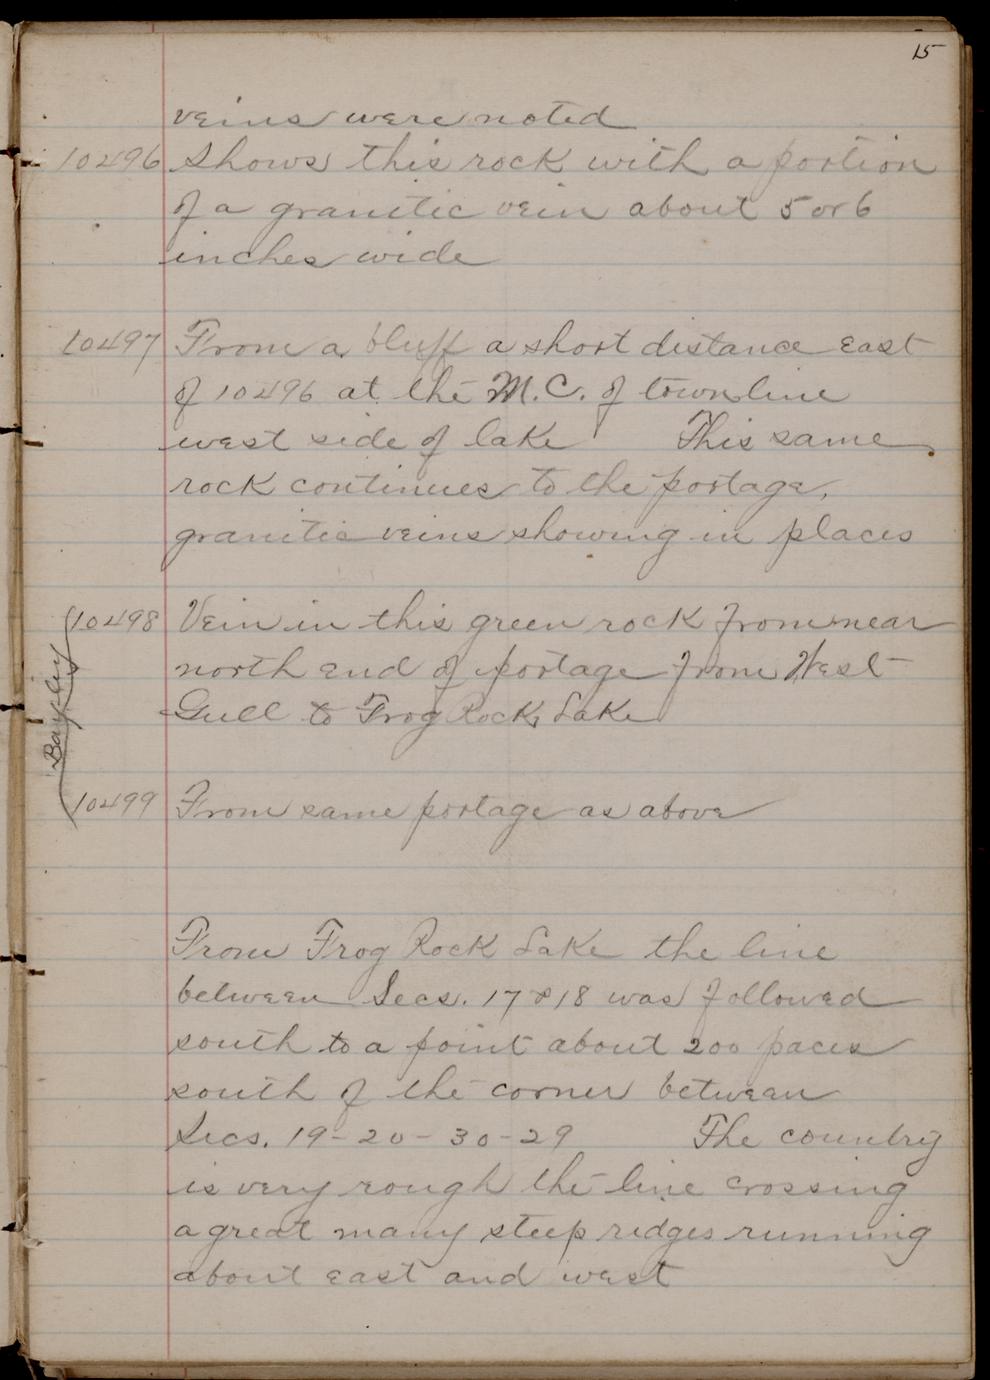 15
veins were noted
10496 Shows this rock with a portion
of a granitic vein about 5 or 6
inches wide
10497 From a bluff a short distance east
of 10496 at the M.C. of town line
west side of lake This same
rock continues to the portage,
granitic veins showing in places
Bayley
10498 Vein in this green rock from near
north end of portage from West
Gull to Frog Rock Lake
10499 From same portage as above
From Frog Rock Lake the line
between Secs. 17 & 18 was followed
south to a point about 200 paces
south of the corner between
Secs. 19-20-30-29 The country
is very rough the line crossing
a great many steep ridges running
about east and west